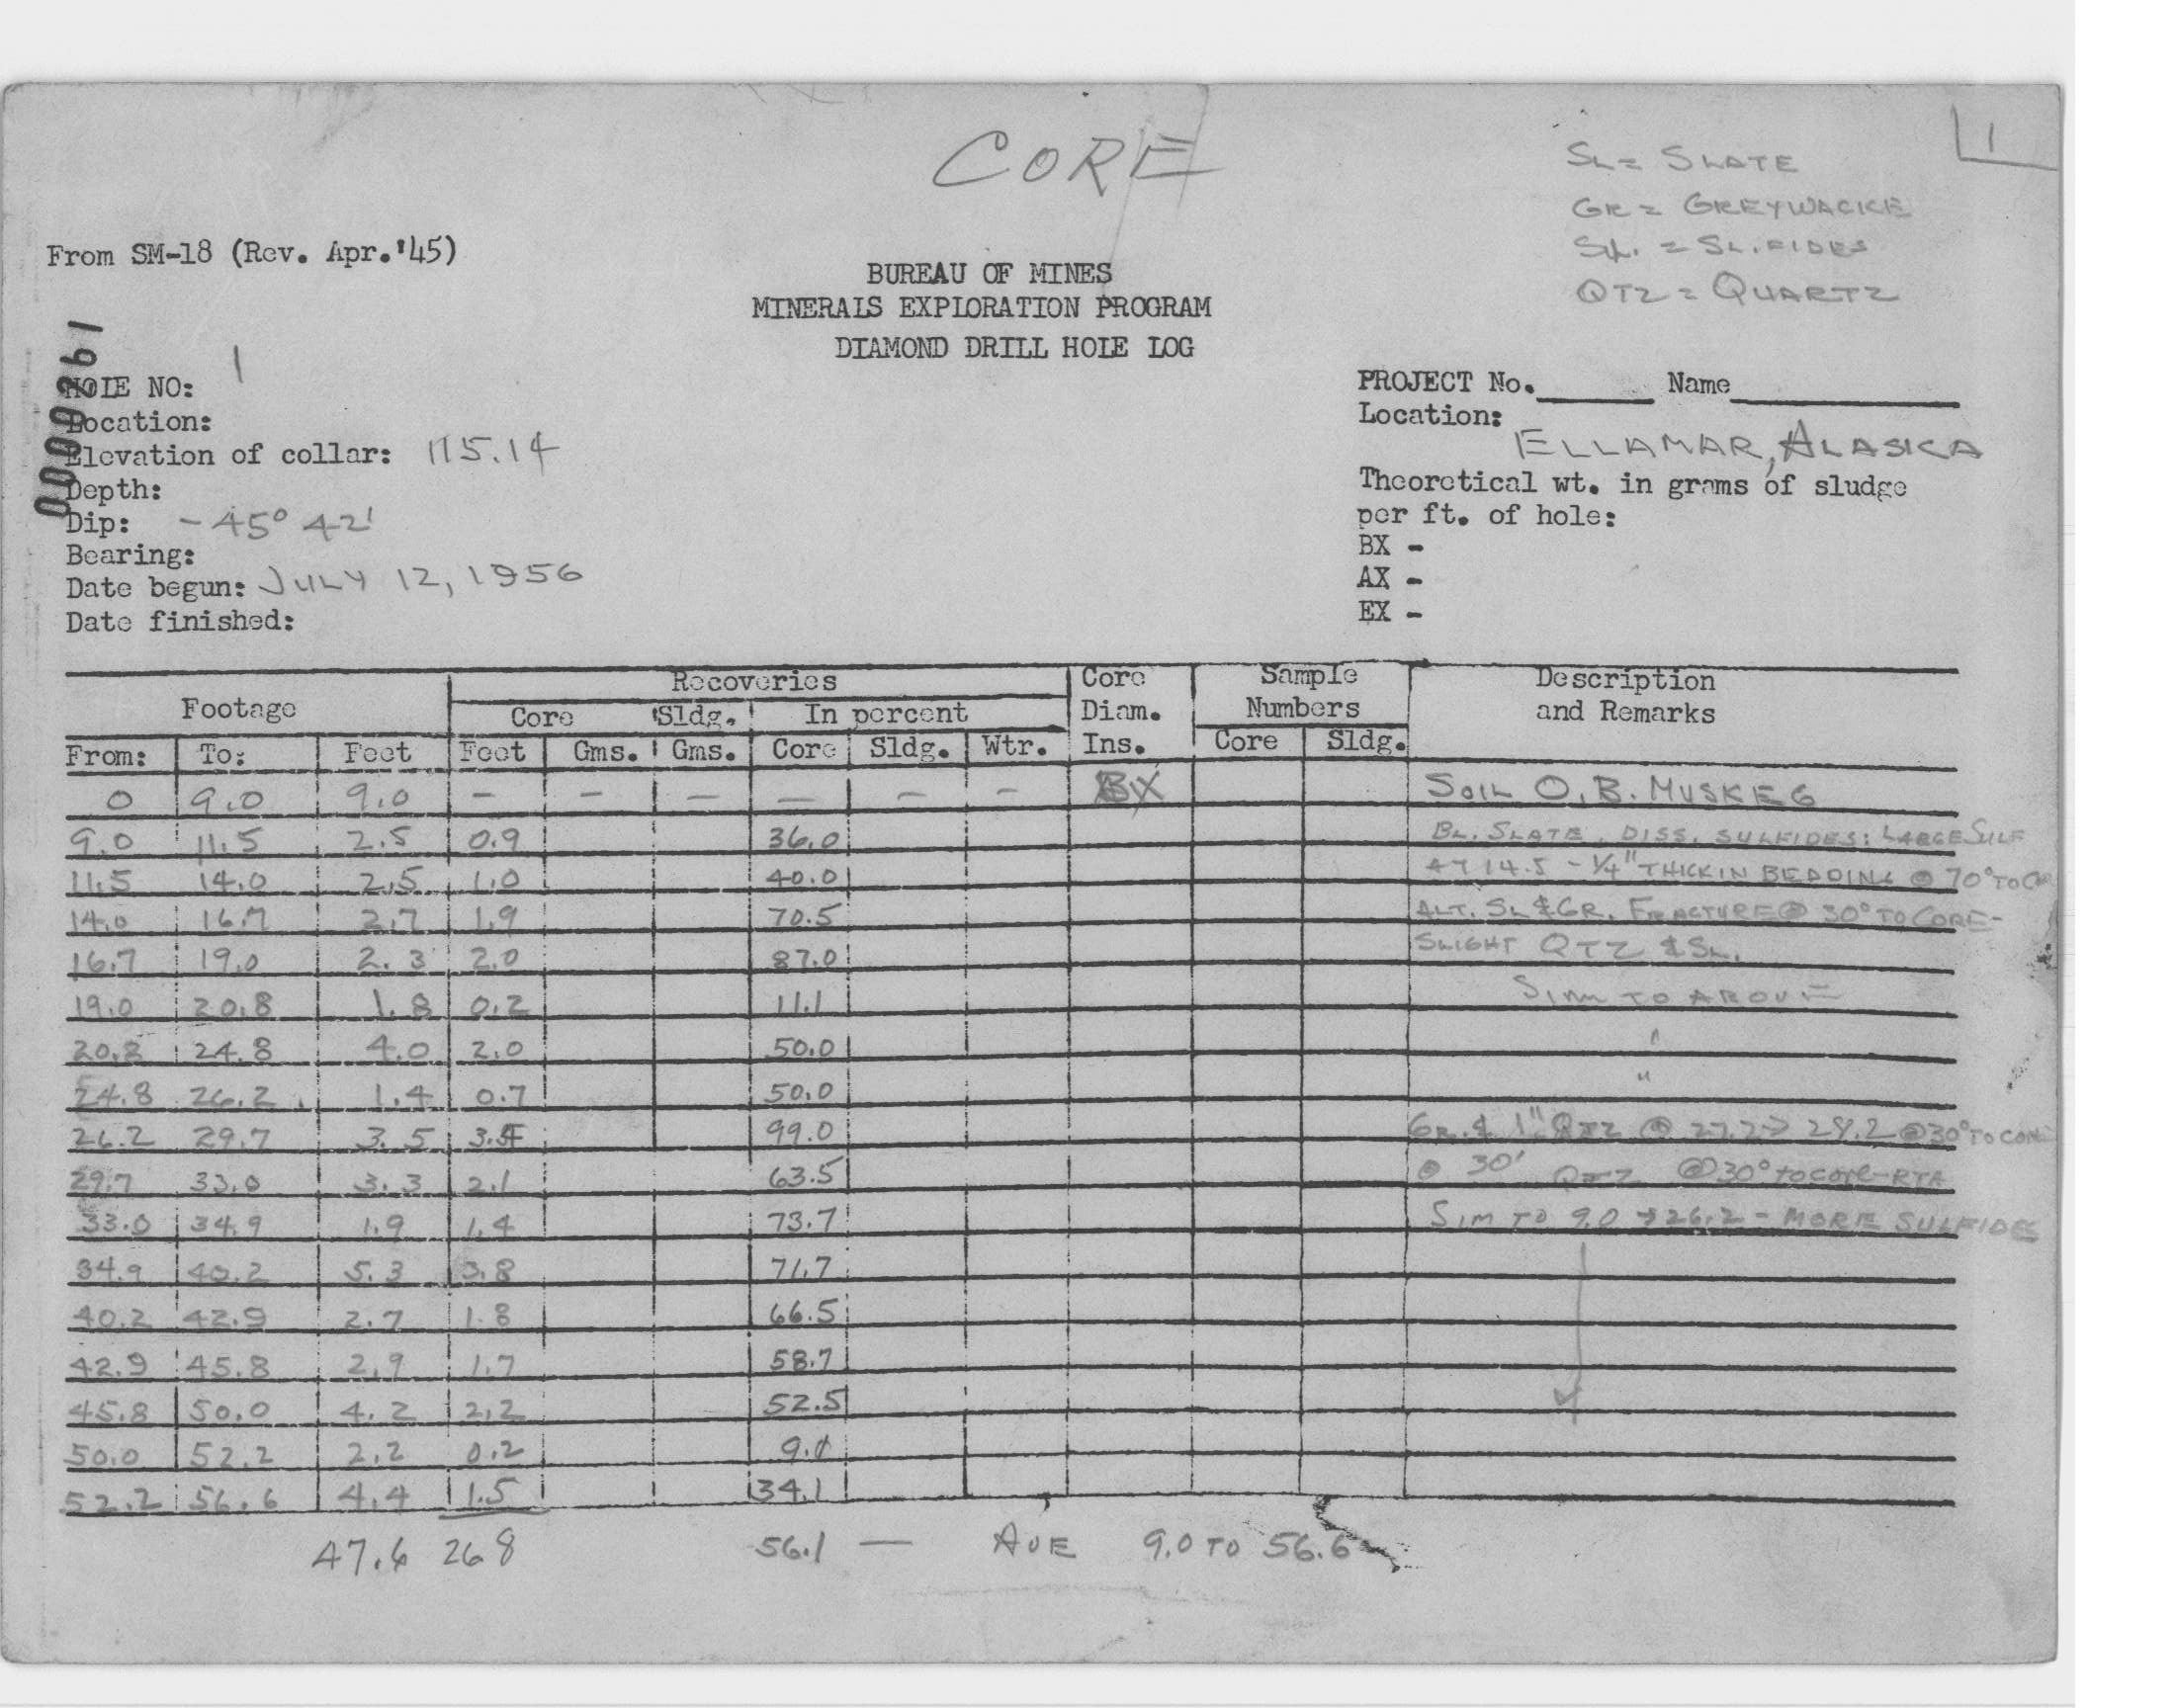 CORE
1
SL = SLATE
GR = GREYWACKE
Sf. = SL.FIDES
QTZ = QUARTZ
From SM-18 (Rev. Apr.'45)
BUREAU OF MINES
MINERALS EXPLORATION PROGRAM
DIAMOND DRILL HOLE LOG
0009261
HOLE NO: 1
Location:
Elevation of collar: 115.14
Depth:
Dip: -45° 42'
Bearing:
Date begun: JULY 12, 1956
Date finished:
PROJECT No. Name
Location:
ELLAMAR, ALASKA
Theoretical wt. in grams of sludge
per ft. of hole:
BX -
AX -
EX -
Footage Recoveries Core Diam. Ins. Sample Numbers Description and Remarks
Core Sldg. In percent
From: To: Feet Feet Gms. Gms. Core Sldg. Wtr. Core Sldg.
0 9.0 9.0 - - - - - - BX SOIL O.B. MUSKEG
9.0 11.5 2.5 0.9 36.0 BL. SLATE. DISS. SULFIDES: LARGE SULF
11.5 14.0 2.5 1.0 40.0 AT 14.5 - 1/4" THICK IN BEDDING @ 70° TO
14.0 16.7 2.7 1.9 70.5 ALT. SL & GR. FRACTURE @ 30° TO CORE-
16.7 19.0 2.3 2.0 87.0 SLIGHT QTZ & SL.
19.0 20.8 1.8 0.2 11.1 SIM TO ABOVE
20.8 24.8 4.0 2.0 50.0 "
24.8 26.2 1.4 0.7 50.0 "
26.2 29.7 3.5 99.0 GR. & 1" QTZ @ 27.2 → 29.2 @ 30° TO CORE
29.7 33.0 3.3 2.1 63.5 @ 30' QTZ @ 30° to core-RTA
33.0 34.9 1.9 1.4 73.7 SIM TO 9.0 → 26.2 - MORE SULFIDES
34.9 40.2 5.3 3.8 71.7
40.2 42.9 2.7 1.8 66.5
42.9 45.8 2.9 1.7 58.7
45.8 50.0 4.2 2.2 52.5
50.0 52.2 2.2 0.2 9.1
52.2 56.6 4.4 1.5 34.1
47.6 26 8 56.1 — AVE 9.0 TO 56.6